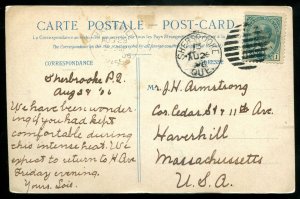 CARTE POSTALE - POST-CARD
CORRESPONDANCE
Sherbrooke P.Q.
Aug 8 '06
We have been wonder-
ing if you had kept
comfortable during
this intense heat. We
expect to return to H. Ave
Friday evening.
Yours, Lois.
SHERBROOKE
QUE.
M. J. H. Armstrong
Cor. Cedar St & 11th Ave.
Haverhill
Massachusetts
U.S.A.